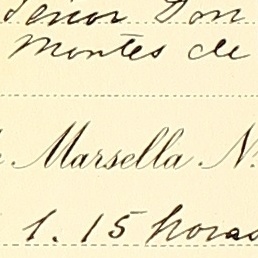 Señor Don
Montes de
Marsella N.
1.15 horas